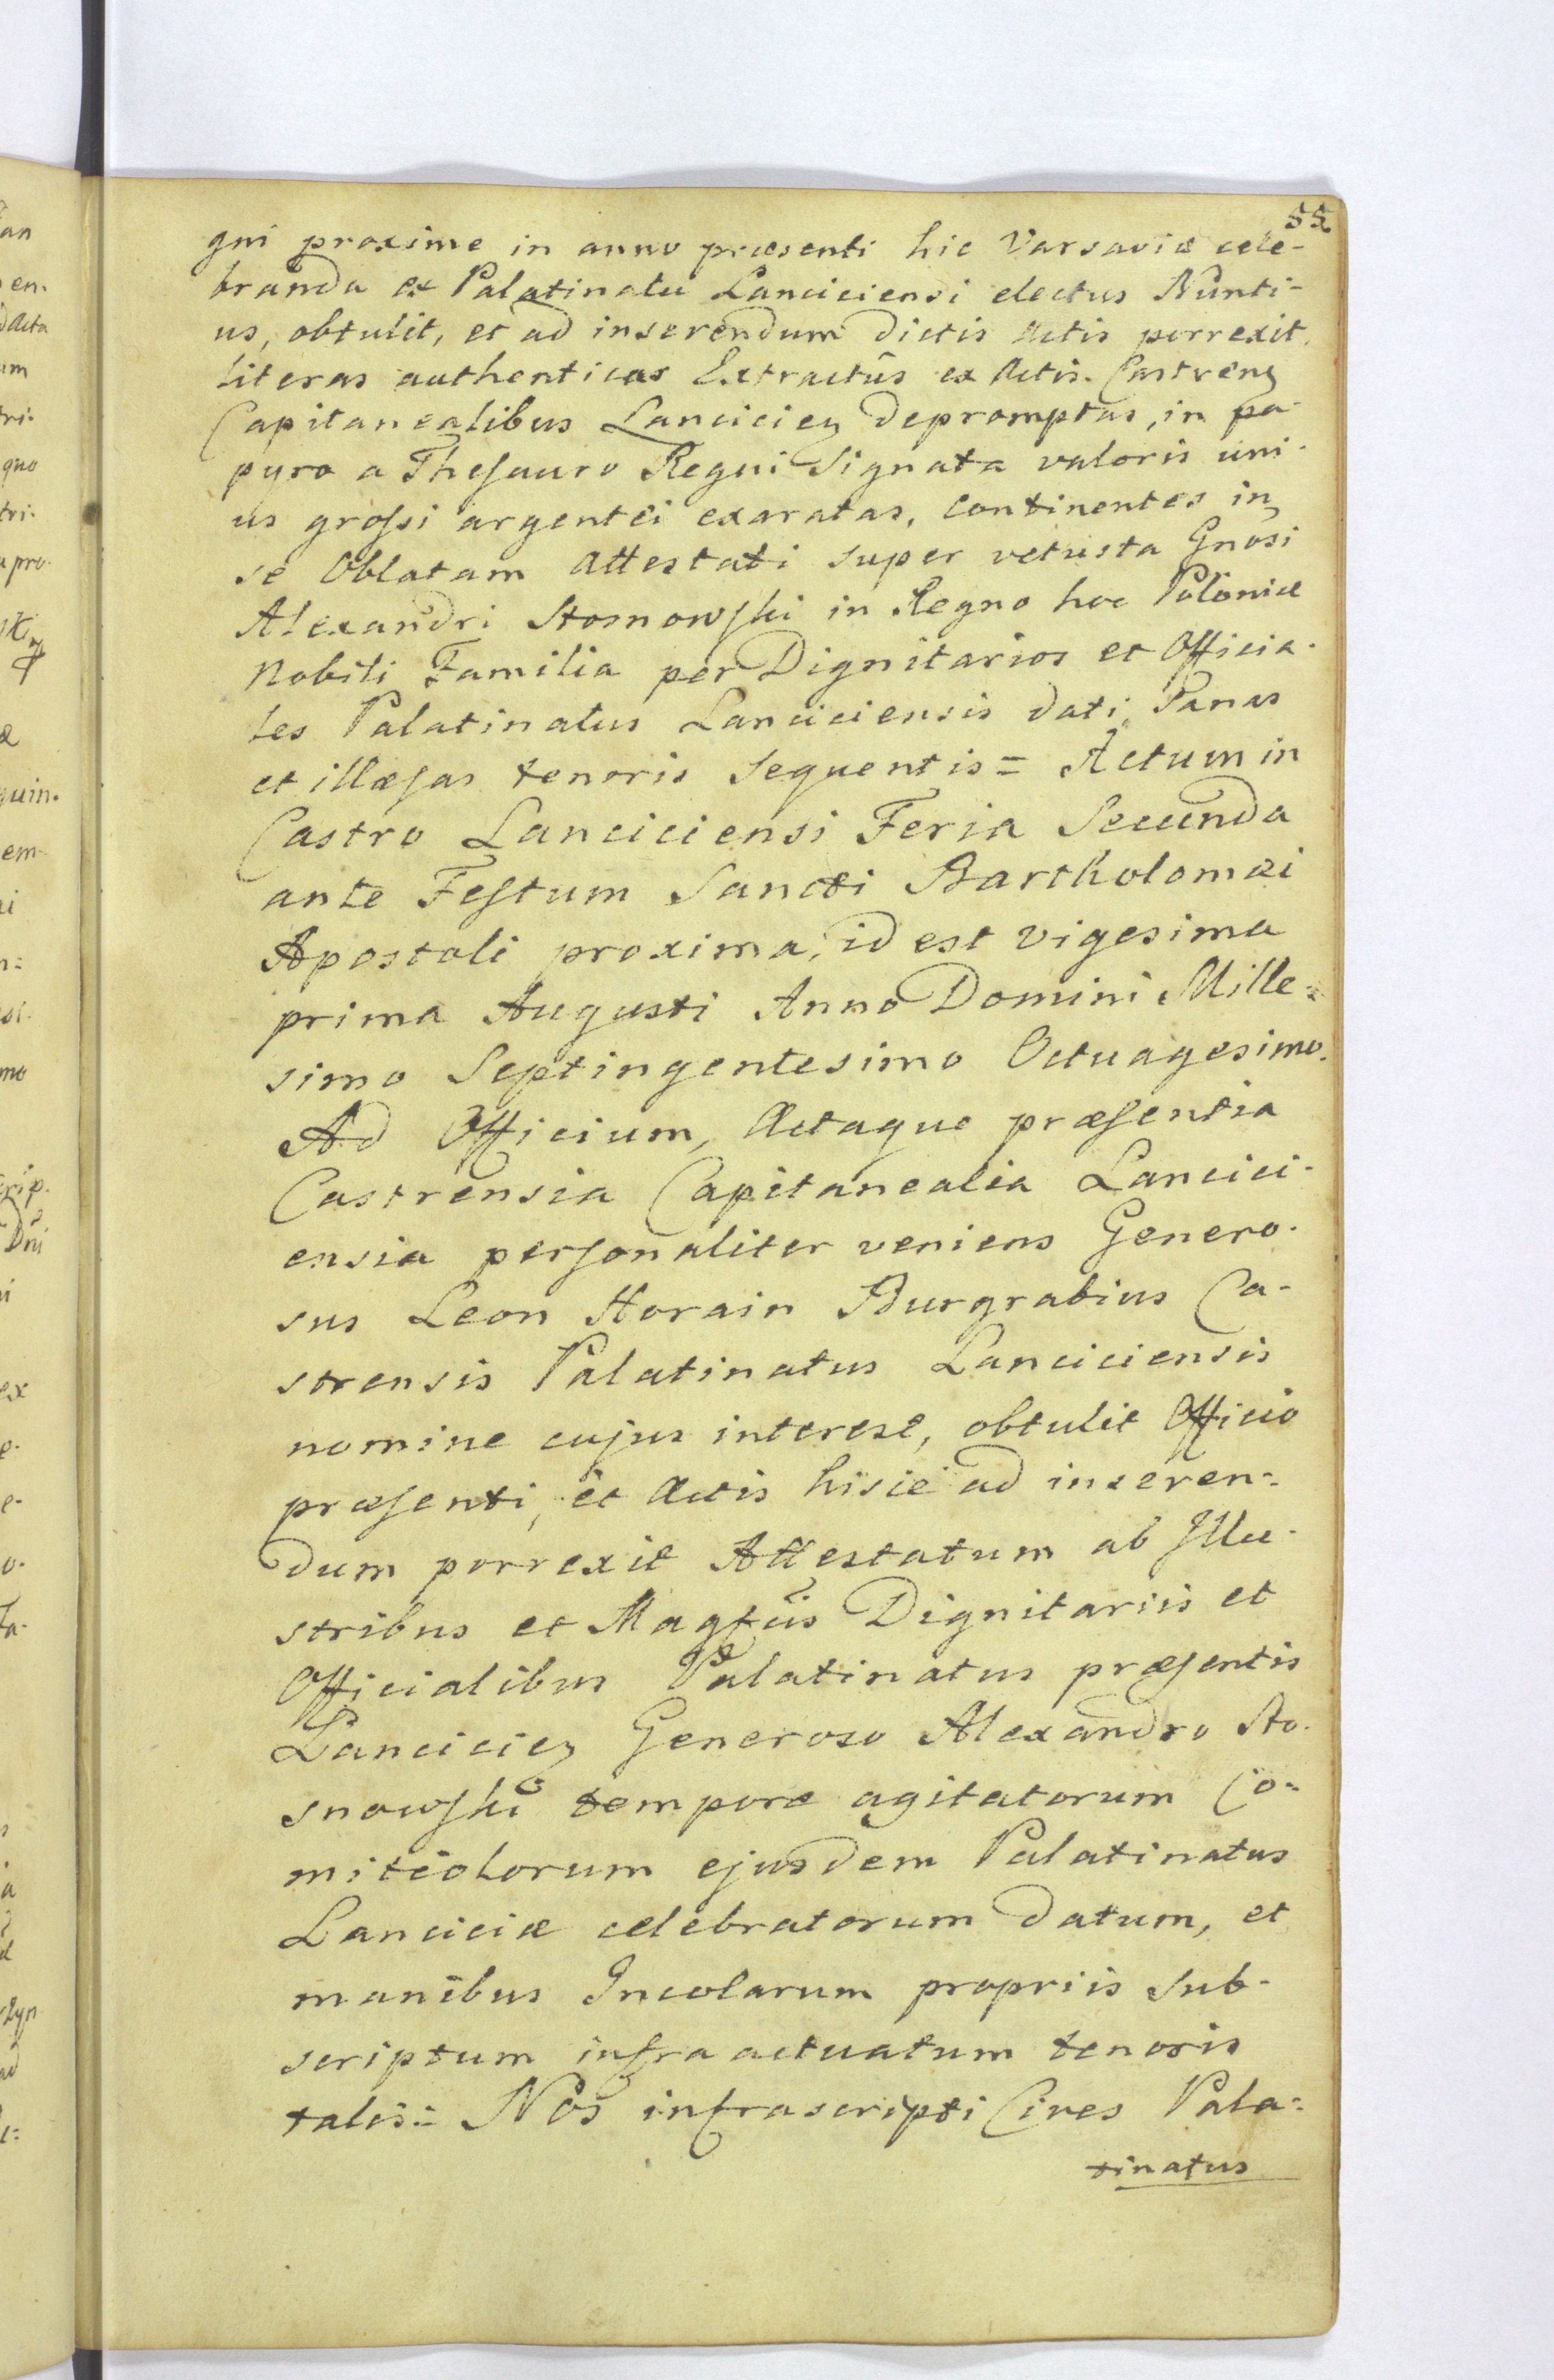 55
gni proxime in anno præsenti hic Varsaviæ cele-
branda ex Palatinatu Lanciciensi electus Nunti-
us, obtulit, et ad inserendum dictis Actis porrexit
literas authenticas Extractûs ex Actis Castren͂
Capitanealibus Lancicien͂ depromptas, in pa-
pyro a Thesauro Regni Signata valoris uni-
us grossi argentei exaratas, continentes in
se Oblatam Attestati super vetusta Gnosi
Alexandri Stosnowski in Regno hoc Poloniæ
Nobili Familia per Dignitarios et Officia-
les Palatinatus Lanciciensis dati, Sanas
et illæsas tenoris sequentis = Actum in
Castro Lanciciensi Feria Secunda
ante Festum Sancti Bartholomæi
Apostoli proxima, id est vigesima
prima Augusti Anno Domini Mille-
simo Septingentesimo Octuagesimo.
Ad Officium, Actaque præsentia
Castrensia Capitanealia Lancici-
ensia personaliter veniens Genero-
sus Leon Horain Burgrabius Ca-
strensis Palatinatus Lanciciensis
nomine cujus interest, obtulit Officio
præsenti, et Actis hisce ad inseren-
dum porrexit Attestatum ab Illu-
stribus et Magfcis Dignitariis et
Officialibus Palatinatus præsentis
Lancicien͂ Generoso Alexandro Sto-
snowski tempore agitatorum Co-
mitiolorum ejusdem Palatinatus
Lanciciæ celebratorum datum, et
manibus Incolarum propriis sub-
scriptum infra actuatum tenoris
talis = Nos infrascripti Cives Pala-
tinatus